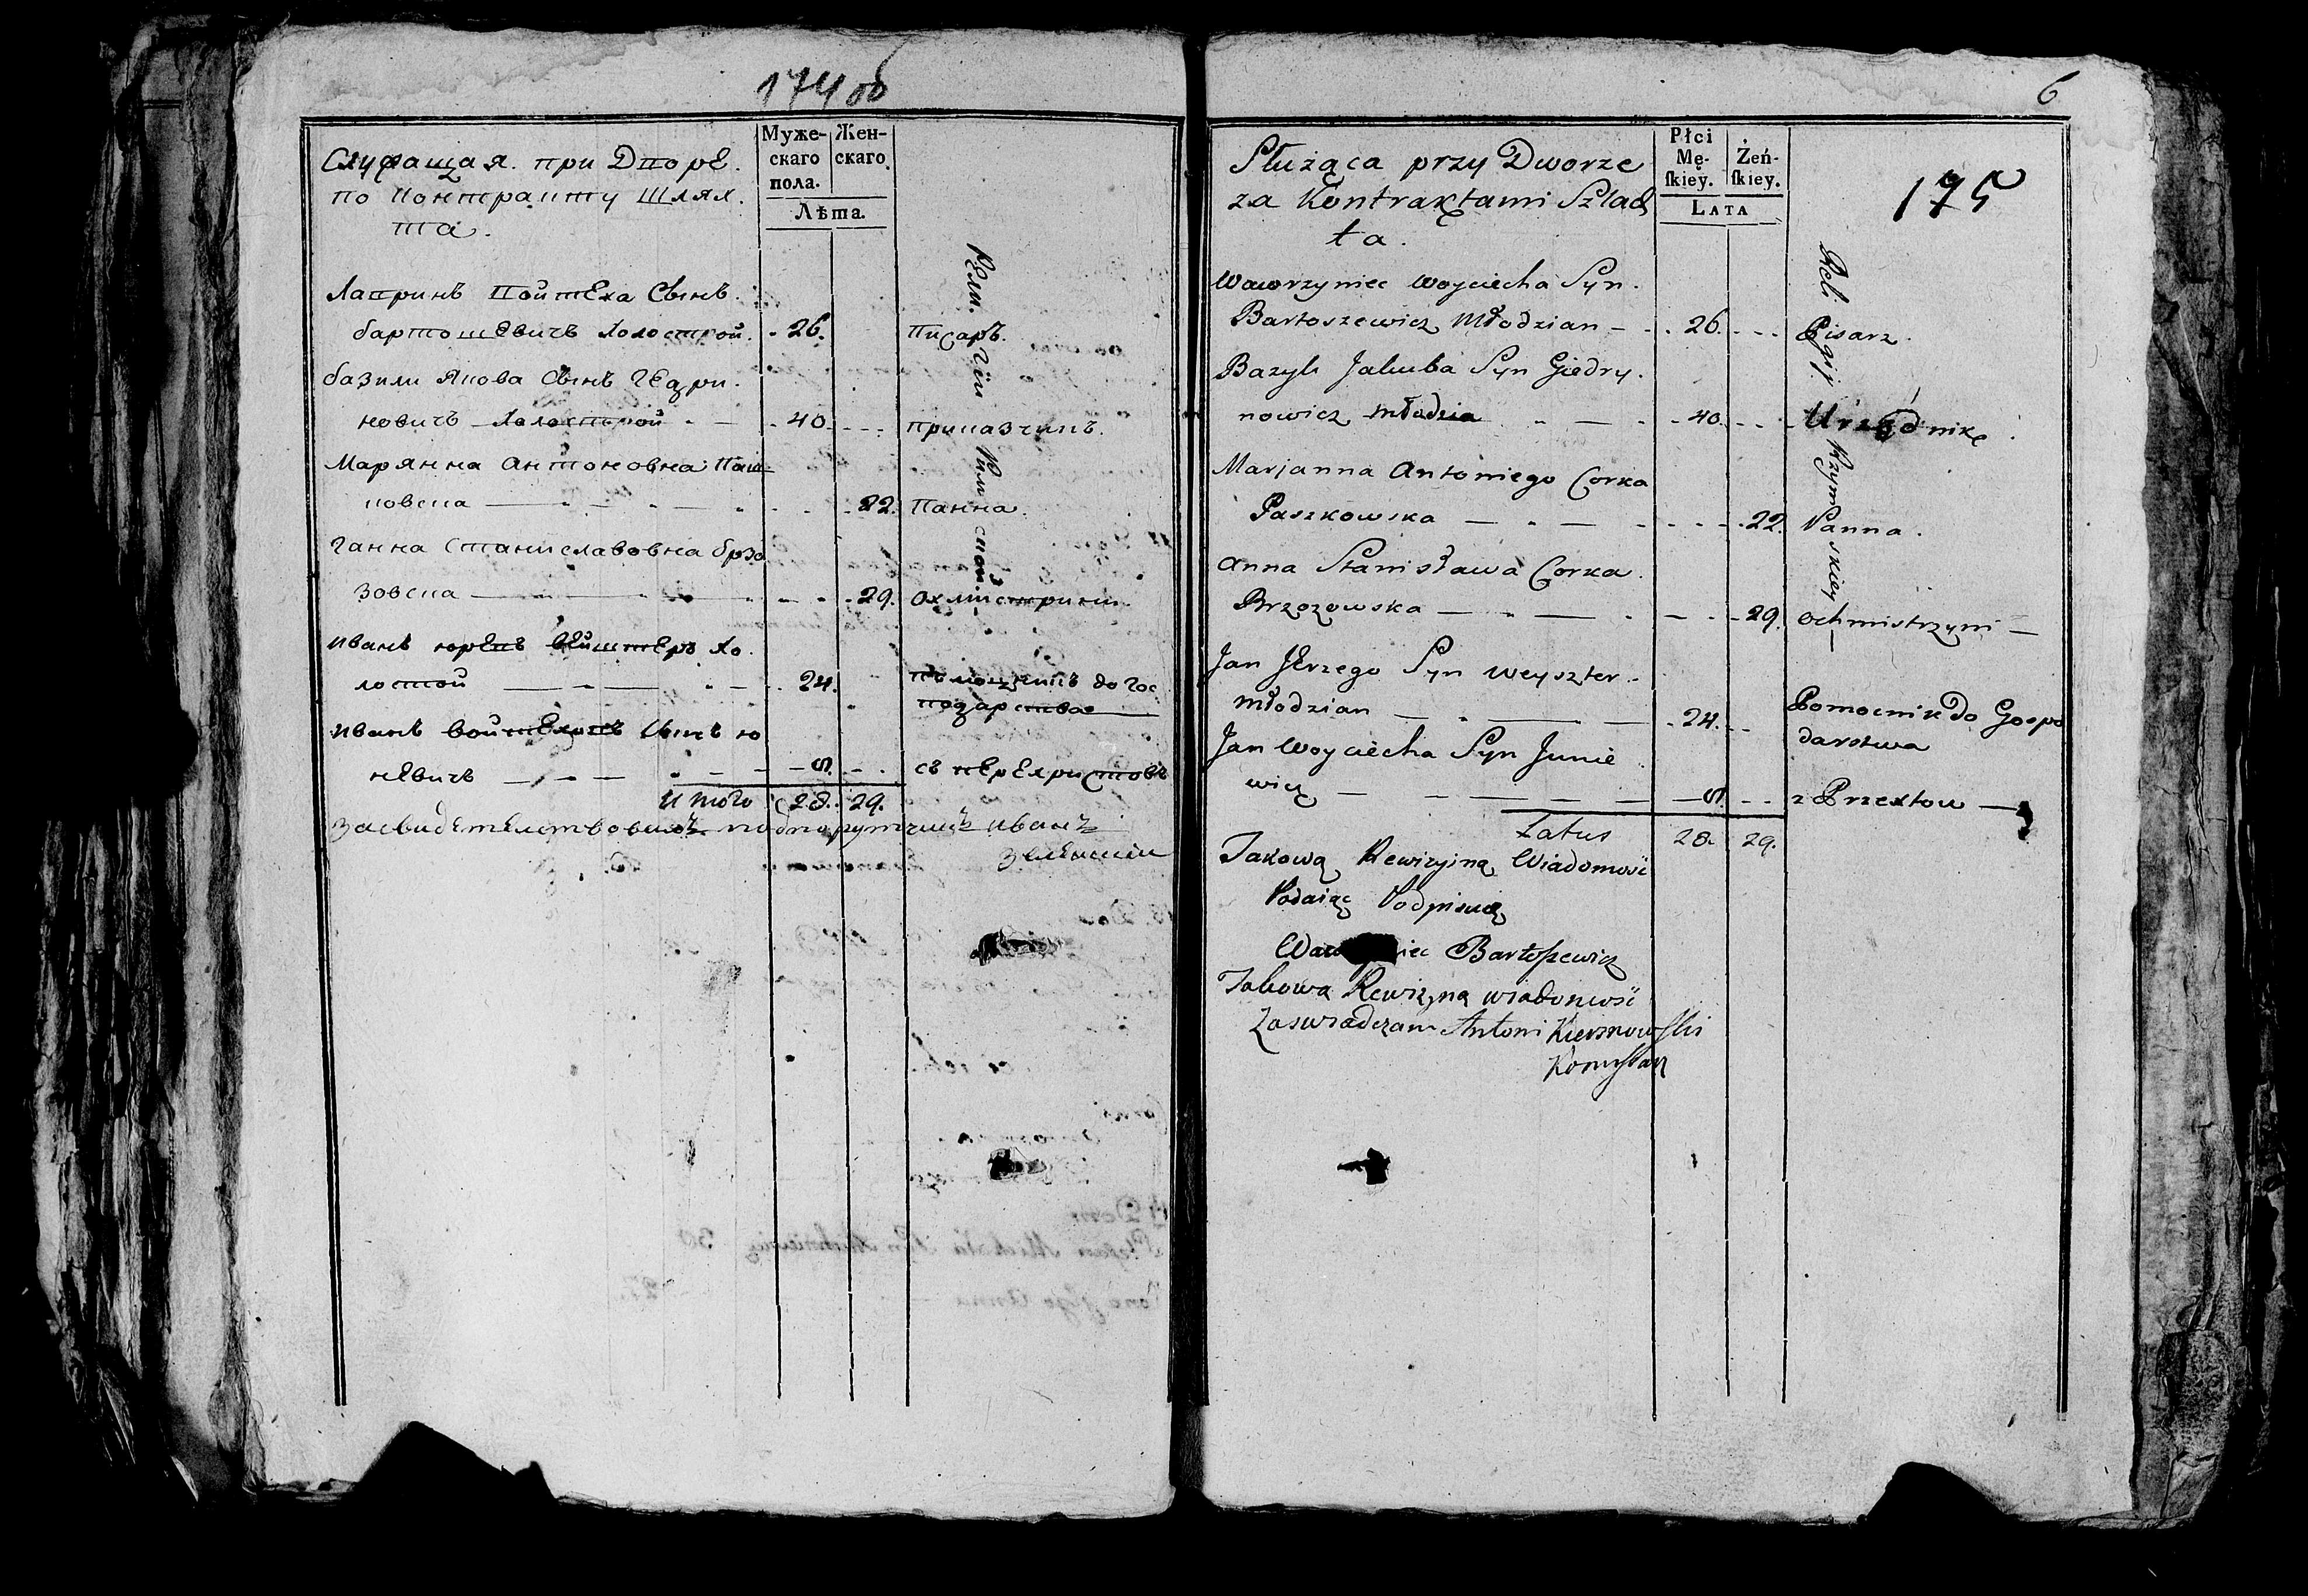 174 об
Муже-
скаго
пола.
Жен-
скаго.
Лѣта.
Служащая. при Дворе.
по контракту шлях.
та.
Рели.
гіи
Рим
ской.
Лавринъ Войтеха Сынъ.
бартошевичъ холостой. 26. писаръ.
базили Якова Сынъ Гедри.
новичъ холостой 40. приказчикъ.
Марянна Антоновна Паш
ковска 22. Панна.
Ганна Станиславовна брзо
зовска 29. охмистрини
иванъ юревъ вейштеръ хо.
лостой 24. помощникъ до гос
подарства
иванъ войтеховъ Сынъ ю
невичъ 5. съ перехристовъ
итого 28. 29.
засвидетелствовалъ подпоручикъ иванъ
6
175
Płci
Mę-
ſkiey.
Żeń-
ſkiey.
LATA
Służąca przy Dworze
za Kontraktami Szlach
ta.
Reli
gij
Rzym
skiey
Wawrzyniec Woyciecha Syn.
Bartoszewicz Młodzian 26. Pisarz.
Bazyli Jakuba Syn Giedry.
nowicz Młodzia 40. Urzędnik
Marjanna Antoniego Corka
Paszkowska 22. Panna.
Anna Stanisława Corka.
Brzozowska 29. Ochmistrzyni
Jan Jerzego Syn Weyszter.
Młodzian 24. Pomocnik do Gospo
darstwa
Jan Woyciecha Syn Junie
wicz 5. z Przextow
Latus 28. 29.
Takową Rewizyiną Wiadomość
Podaiąc Podpisuię
Waw iec Bartoszewicz
Takową Rewizyną wiadomość
Zaswiadczam Antoni Kiersnowski